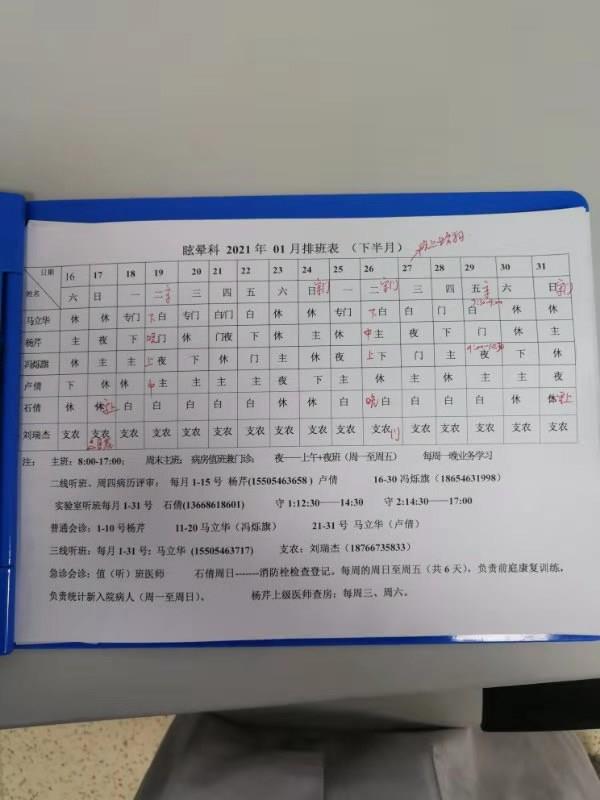 眩晕科 2021 年 01 月排班表 （下半月）
日期 16 17 18 19 20 21 22 23 24 25 26 27 28 29 30 31
姓名 六 日 一 二 三 四 五 六 日 一 二 三 四 五 六 日
马立华 休 休 专门 下 白 专门 白门 白 休 休 专门 下 白 白 门 白 休 休
杨芹 主 夜 下 晚 门 休 门夜 下 休 休 主 中 主 夜 下 门 休 主
冯烁旗 休 主 主 上 夜 下 休 门 主 休 夜 上 下 门 主 夜 下 休
卢倩 下 休 休 中 主 主 主 主 夜 下 主 休 主 休 主 主 夜
石倩 休 休 白 白 白 白 白 休 休 白 晚 白 白 白 白 休 休
刘瑞杰 支农 支农 支农 支农 支农 支农 支农 支农 支农 支农 支农 门 支农 支农 支农 支农 支农
注： 主班: 8:00-17:00; 周末主班: 病房值班兼门诊; 夜——上午+夜班（周一至周五） 每周一晚业务学习
二线听班、周四病历评审： 每月 1-15 号 杨芹(15505463658 ) 卢倩 16-30 冯烁旗（18654631998）
实验室听班每月 1-31 号 石倩(13668618601) 守 1:12:30——14:30 守 2:14:30——17:00
普通会诊: 1-10 号杨芹 11-20 马立华（冯烁旗） 21-31 号 马立华（卢倩）
三线听班: 每月 1-31 号: 马立华 (15505463717) 支农: 刘瑞杰（18766735833）
急诊会诊: 值（听）班医师 石倩周日-------消防栓检查登记。每周的周日至周五（共 6 天），负责前庭康复训练,
负责统计新入院病人（周一至周日）、 杨芹上级医师查房: 每周三、周六。